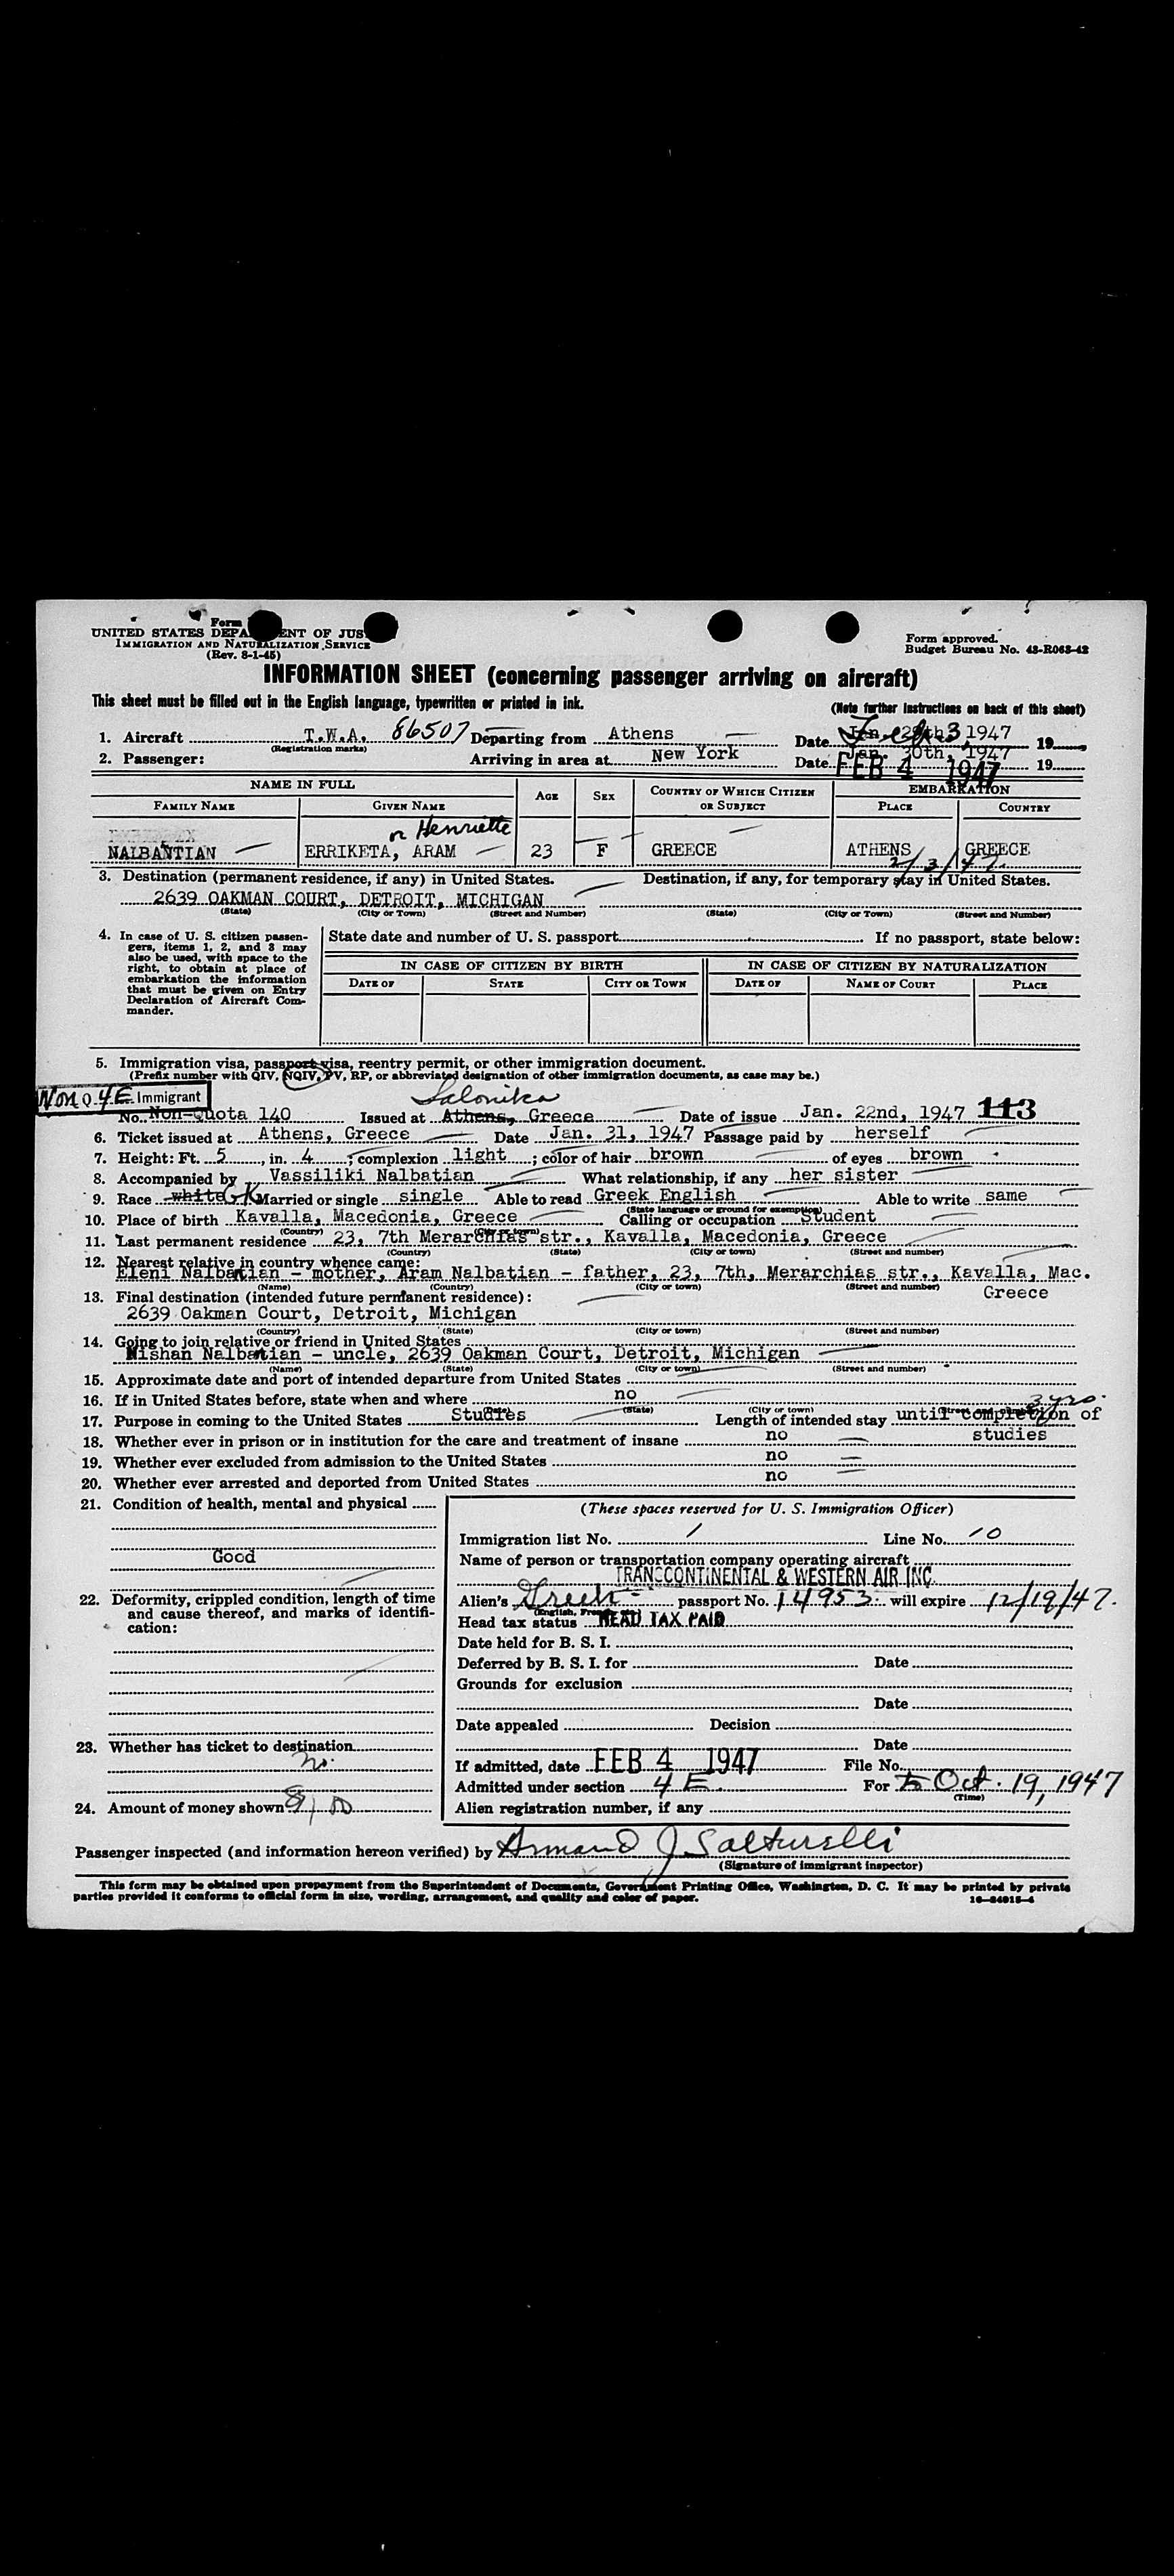 Form
UNITED STATES DEPA ENT OF JUS
IMMIGRATION AND NATURALIZATION SERVICE
(Rev. 8-1-45)
Form approved.
Budget Bureau No. 43-R063-42
INFORMATION SHEET (concerning passenger arriving on aircraft)
This sheet must be filled out in the English language, typewritten or printed in ink.
(Note further instructions on back of this sheet)
1. Aircraft T.W.A. 86507 Departing from Athens Date Jan. 29th 1947 Feb. 3 19
(Registration marks)
2. Passenger: Arriving in area at New York Date Jan. 30th, 1947 19
FEB 4 1947
NAME IN FULL
FAMILY NAME GIVEN NAME AGE SEX COUNTRY OF WHICH CITIZEN OR SUBJECT EMBARKATION PLACE COUNTRY
or Henriette
NALBANTIAN ERRIKETA, ARAM 23 F GREECE ATHENS GREECE
2/3/47.
3. Destination (permanent residence, if any) in United States. Destination, if any, for temporary stay in United States.
2639 OAKMAN COURT, DETROIT, MICHIGAN
(State) (City or Town) (Street and Number) (State) (City or Town) (Street and Number)
4. In case of U. S. citizen passengers, items 1, 2, and 3 may also be used, with space to the right, to obtain at place of embarkation the information that must be given on Entry Declaration of Aircraft Commander.
State date and number of U. S. passport If no passport, state below:
IN CASE OF CITIZEN BY BIRTH IN CASE OF CITIZEN BY NATURALIZATION
DATE OF STATE CITY OR TOWN DATE OF NAME OF COURT PLACE
5. Immigration visa, passport visa, reentry permit, or other immigration document.
(Prefix number with QIV, NQIV, PV, RP, or abbreviated designation of other immigration documents, as case may be.)
Non Q. 4E Immigrant
Salonika
No. Non-Quota 140 Issued at Athens, Greece Date of issue Jan. 22nd, 1947 113
6. Ticket issued at Athens, Greece Date Jan. 31, 1947 Passage paid by herself
7. Height: Ft. 5, in. 4; complexion light; color of hair brown of eyes brown
8. Accompanied by Vassiliki Nalbatian What relationship, if any her sister
9. Race white GK Married or single single Able to read Greek English Able to write same
(State language or ground for exemption)
10. Place of birth Kavalla, Macedonia, Greece Calling or occupation Student
(Country) (City or town)
11. Last permanent residence 23, 7th Merarchias str., Kavalla, Macedonia, Greece
(Country) (State) (City or town) (Street and number)
12. Nearest relative in country whence came:
Eleni Nalbatian - mother, Aram Nalbatian - father, 23, 7th, Merarchias str., Kavalla, Mac.
(Name) (Country) (City or town) (Street and number)
Greece
13. Final destination (intended future permanent residence):
2639 Oakman Court, Detroit, Michigan
(Country) (State) (City or town) (Street and number)
14. Going to join relative or friend in United States
Nishan Nalbatian - uncle, 2639 Oakman Court, Detroit, Michigan
(Name) (State) (City or town) (Street and number)
15. Approximate date and port of intended departure from United States
16. If in United States before, state when and where no
(Date) (State) (City or town) (Street and number)
3 yrs.
17. Purpose in coming to the United States Studies Length of intended stay until completion of
studies
18. Whether ever in prison or in institution for the care and treatment of insane no
19. Whether ever excluded from admission to the United States no
20. Whether ever arrested and deported from United States no
21. Condition of health, mental and physical
Good
22. Deformity, crippled condition, length of time and cause thereof, and marks of identification:
23. Whether has ticket to destination
no.
24. Amount of money shown
(These spaces reserved for U. S. Immigration Officer)
Immigration list No. 1 Line No. 10
Name of person or transportation company operating aircraft
TRANSCONTINENTAL & WESTERN AIR INC.
Alien's Greek passport No. 14953 will expire 12/19/47.
Head tax status HEAD TAX PAID
Date held for B. S. I.
Deferred by B. S. I. for Date
Grounds for exclusion
Date
Date appealed Decision
Date
If admitted, date FEB 4 1947 File No.
Admitted under section 4 E For to Oct. 19, 1947
(Time)
Alien registration number, if any
Passenger inspected (and information hereon verified) by Armand J Salturelli
(Signature of immigrant inspector)
This form may be obtained upon prepayment from the Superintendent of Documents, Government Printing Office, Washington, D. C. It may be printed by private
parties provided it conforms to official form in size, wording, arrangement, and quality and color of paper.
16-24015-4